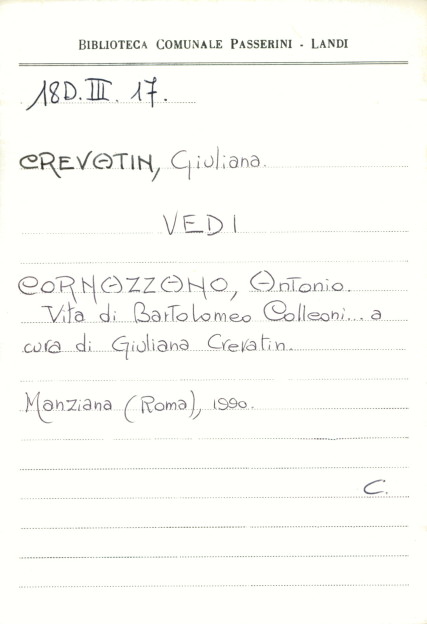 BIBLIOTECA COMUNALE PASSERINI - LANDI
18D.III. 17.
CREVATIN, Giuliana.
VEDI
CORNAZZANO, Antonio.
Vita di Bartolomeo Colleoni... a
cura di Giuliana Crevatin.
Manziana (Roma), 1990.
C.